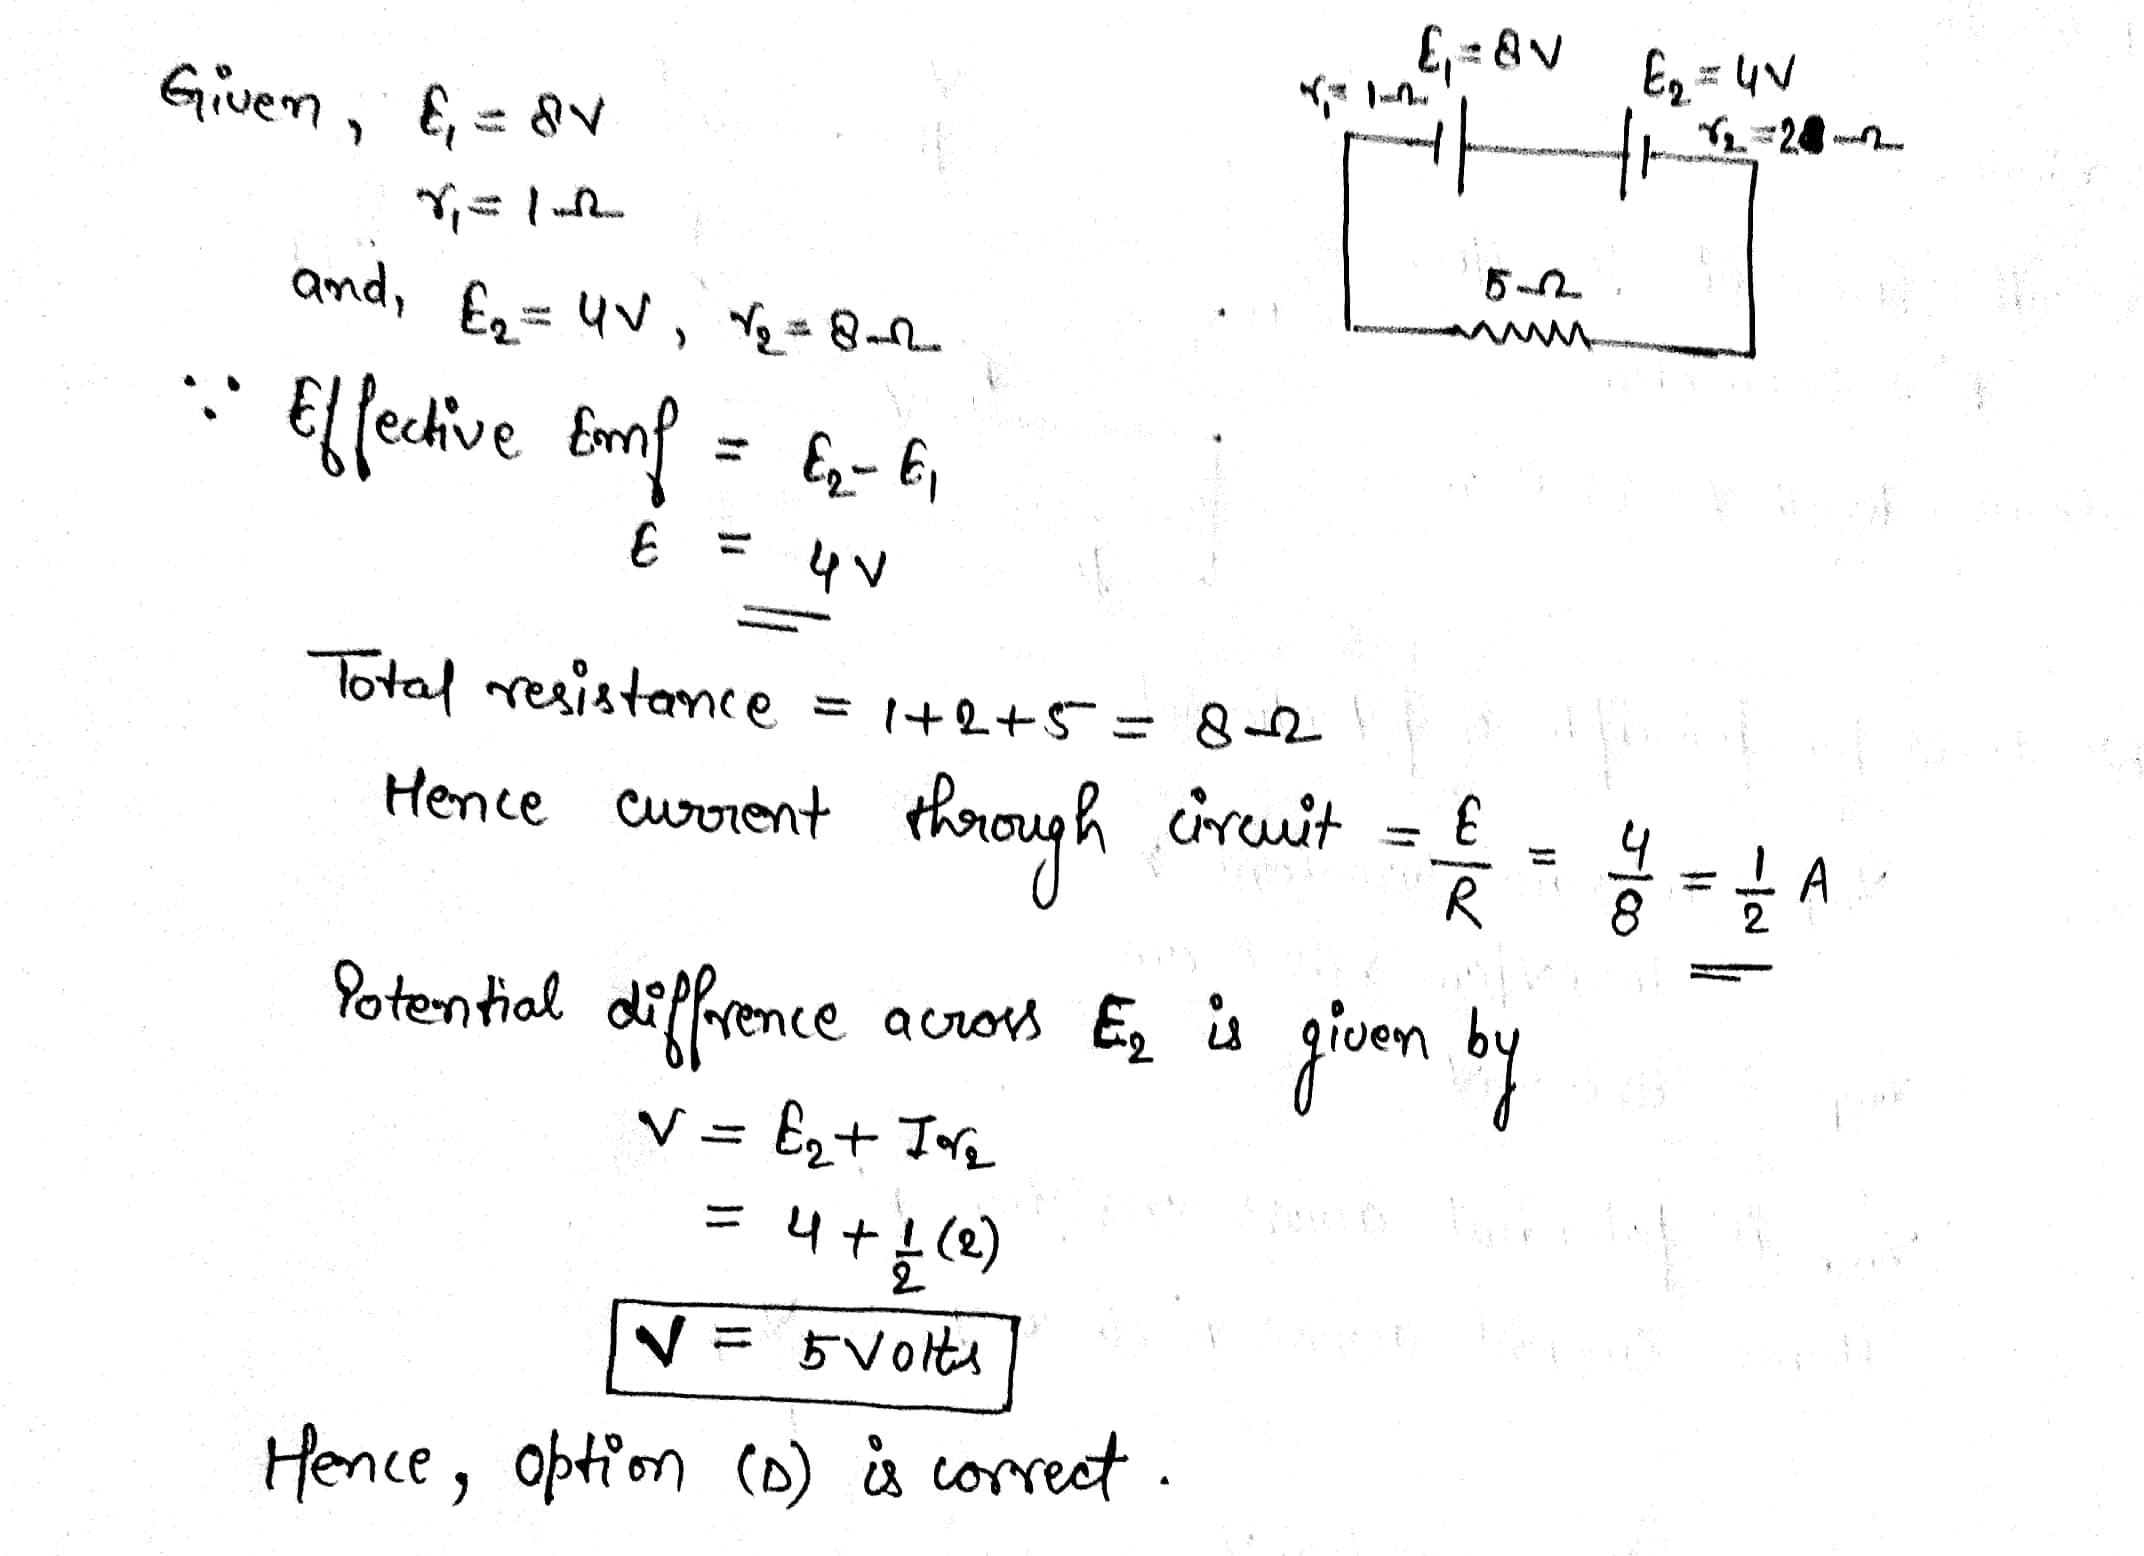 Given, E₁ = 8V
r₁ = 1Ω
and, E₂ = 4V, r₂ = 8Ω
∵ Effective Emf = E₂ - E₁
E = 4V
Total resistance = 1+2+5 = 8Ω
Hence current through circuit = E/R = 4/8 = 1/2 A
Potential diffrence across E₂ is given by
V = E₂ + Ir₂
= 4 + 1/2 (2)
V = 5 Volts
Hence, option (D) is correct.
E₁ = 8V
r₁ = 1Ω
E₂ = 4V
r₂ = 2Ω
5Ω